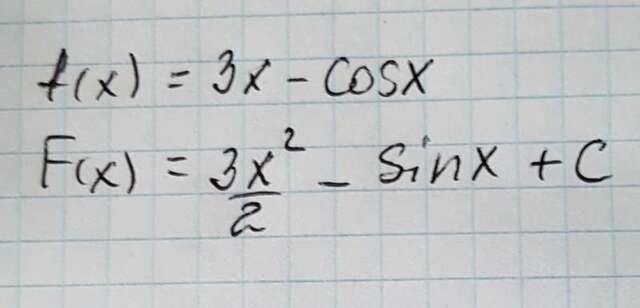 f(x) = 3x - cosx
F(x) = 3x²/2 - sinx + C